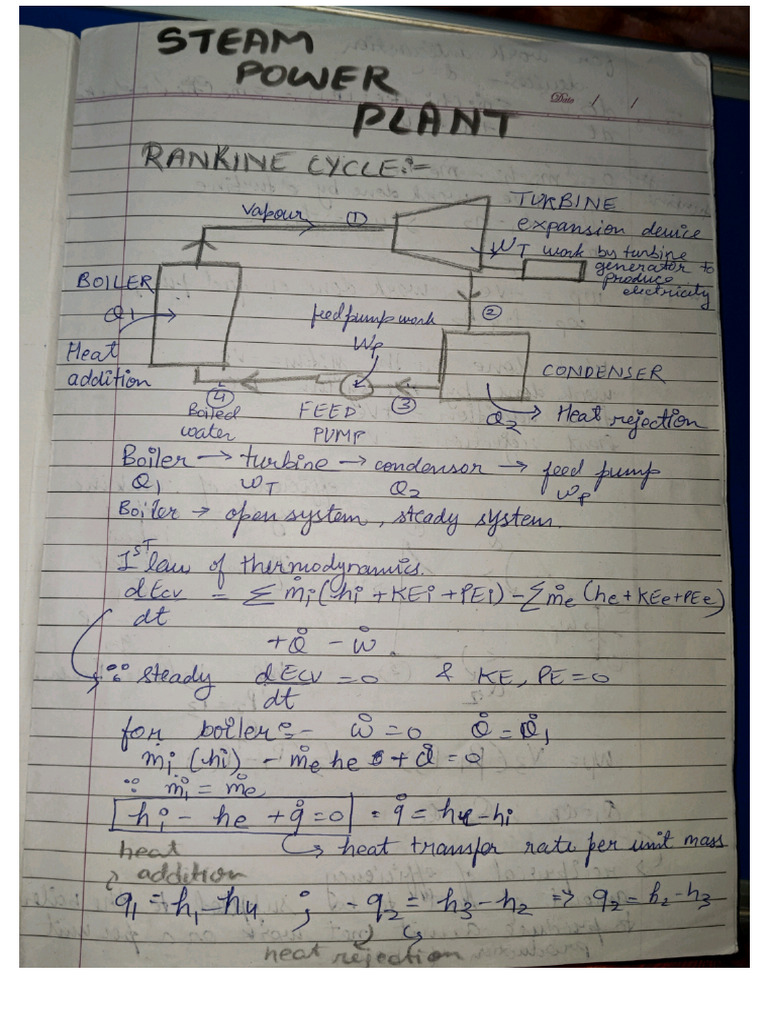 STEAM
POWER
PLANT
Date / /
RANKINE CYCLE:-
Vapour ①
TURBINE
expansion device
WT work by turbine
generator to
produce
electricity
BOILER
Q1
Heat
addition
feed pump work
Wp
②
CONDENSER
Q2 → Heat rejection
④
③
Boiled
water
FEED
PUMP
Boiler → turbine → condensor → feed pump
Q1 WT Q2 Wp
Boiler → open system, steady system.
1ST law of thermodynamics.
dEcv/dt = Σ ṁi (hi + KEi + PEi) - Σ ṁe (he + KEe + PEe)
+ Q̇ - ẇ.
∵ steady dEcv/dt = 0 & KE, PE = 0
for boiler:- ẇ = 0 Q̇ = Q̇1
ṁi (hi) - ṁe he + Q̇ = 0
∵ ṁi = ṁe
hi - he + q̇ = 0 = q̇ = he - hi
↳ heat transfer rate per unit mass
heat
addition
q1 = h1 - h4 ; - q2 = h3 - h2 => q2 = h2 - h3
heat rejection